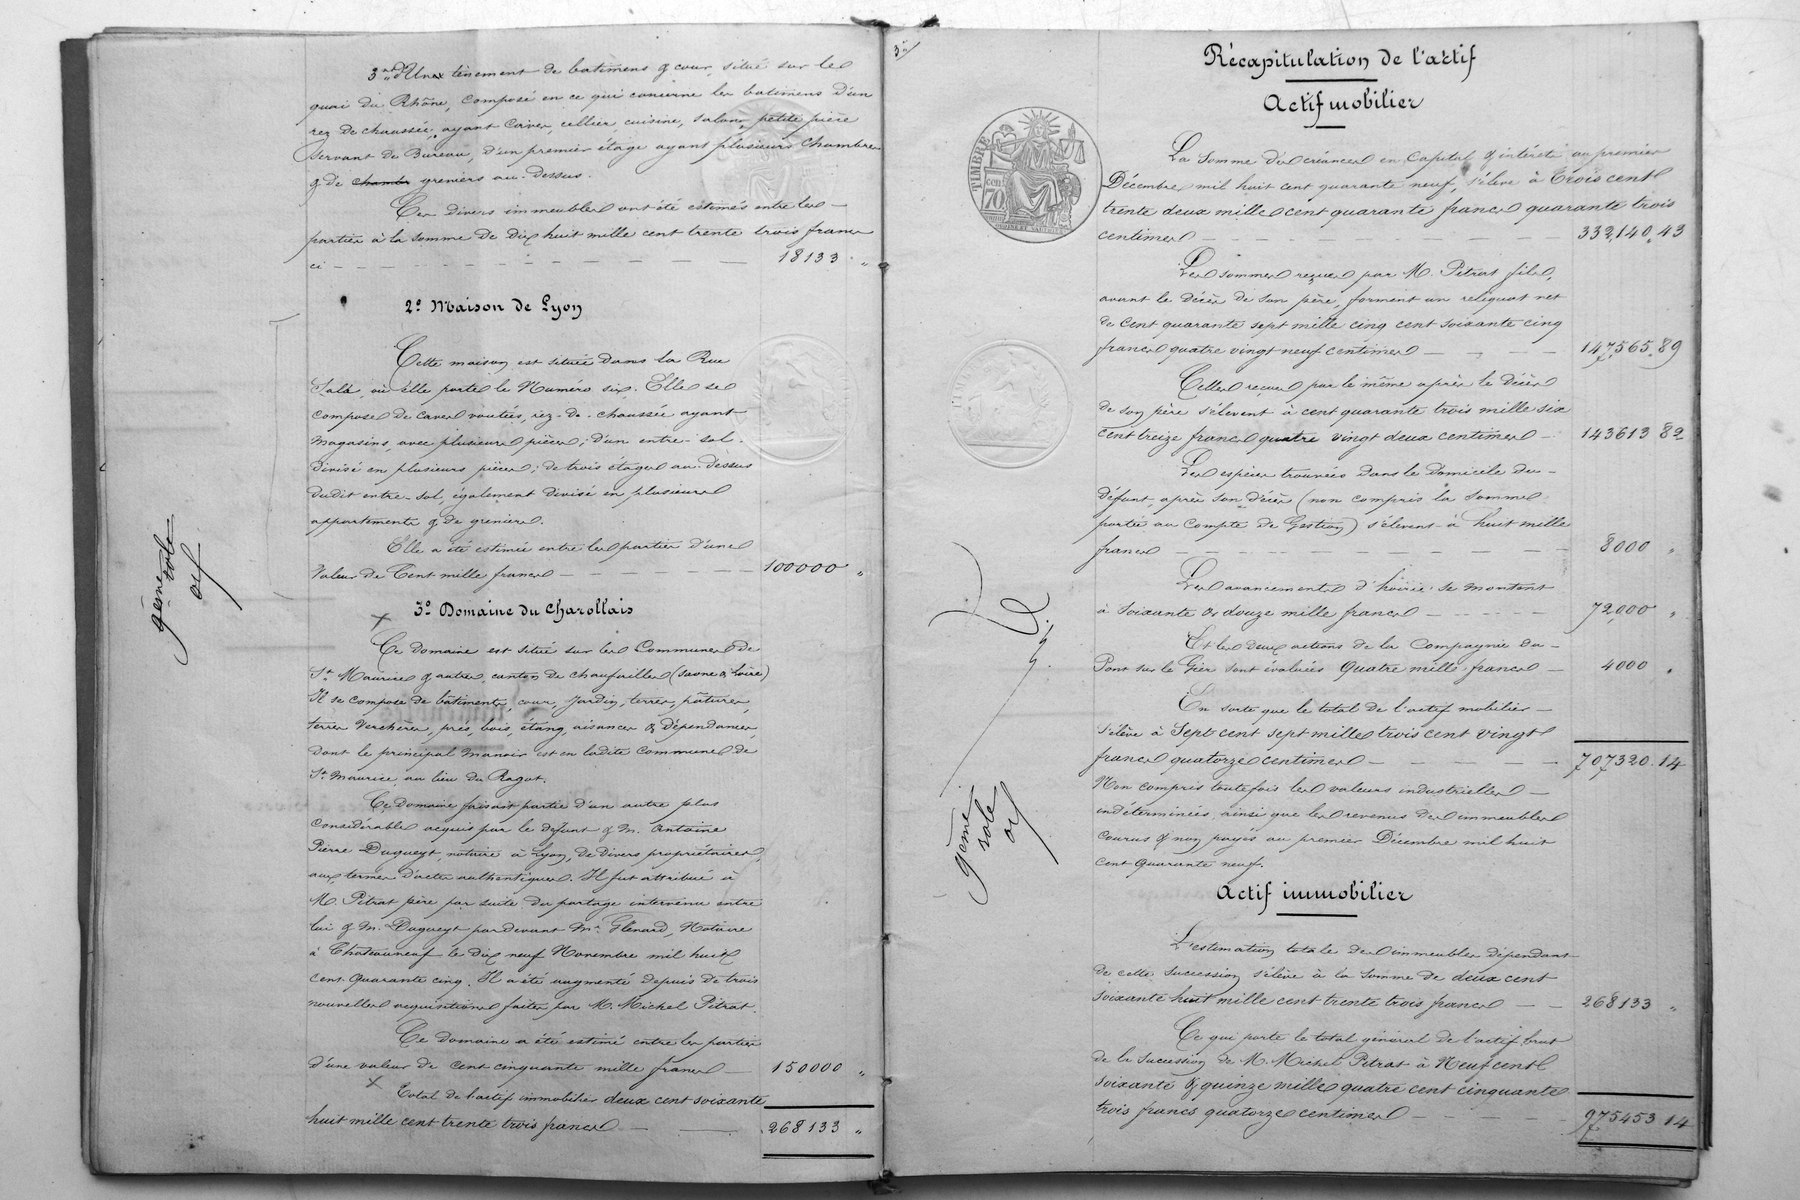 3nt d'Un tènement de batimens & cour, situé sur le
quai du Rhône, composé en ce qui concerne les batimens d'un
rez de chaussée, ayant caves, cellier, cuisine, salon, petite pièce
servant de Bureau, d'un premier étage ayant plusieurs chambres
& de chambr greniers au-dessus.
Ces divers immeubles ont été estimés entre les
parties à la somme de Dix huit mille cent trente trois francs
ci — 18133 "
2° Maison de Lyon
Cette maison est située dans la Rue
Sala, où elle porte le Numéro six. Elle se
compose de caves voutées, rez-de-chaussée ayant
magasins, avec plusieurs pièces; d'un entre-sol
divisé en plusieurs pièces; de trois étages au-dessus
dudit entre-sol, également divisé en plusieurs
appartements & de greniers.
Elle a été estimée entre les parties d'une
valeur de Cent mille francs — 100000 "
3° Domaine du Charollais
Ce domaine est situé sur les Communes de
St Maurice & autres, canton de chaufailles (Saone & Loire)
Il se compose de bâtiments, cour, Jardin, terres, pâtures,
terres Verchères, prés, bois, étang, aisances & dépendances,
dont le principal manoir est en ladite commune de
St Maurice au lieu du Ragot.
Ce Domaine faisait partie d'un autre plus
considérable acquis par le défunt & M. Antoine
Pierre Dugueyt, notaire à Lyon, de divers propriétaires,
aux termes d'actes authentiques. Il fut attribué à
M. Pitrat père par suite du partage intervenu entre
lui & M. Dugueyt pardevant Me Glénard, Notaire
à Chateauneuf le dix neuf Novembre mil huit
cent quarante cinq. Il a été augmenté depuis de trois
nouvelles acquisitions faites par M. Michel Pitrat.
Ce domaine a été estimé entre les parties
d'une valeur de cent cinquante mille francs — 150000 "
Total de l'actif immobilier deux cent soixante
huit mille cent trente trois francs — 268133 "
9eme
role
Récapitulation de l'actif
Actif mobilier
TIMBRE
70
La somme des créances en capital & intérêts au premier
Décembre mil huit cent quarante neuf, s'élève à Trois cent
trente deux mille cent quarante francs quarante trois
centimes — 332,140,43
Les sommes reçues par M. Pitrat fils,
avant le décès de son père, forment un reliquat net
de cent quarante sept mille cinq cent soixante cinq
francs quatre vingt neuf centimes — 147,565.89
Celles reçues par le même après le décès
de son père s'élèvent à cent quarante trois mille six
cent treize francs quatre vingt deux centimes — 143613 82
Les espèces trouvées dans le domicile du
défunt après son décès (non compris la somme
portée au Compte de Gestion) s'élèvent à huit mille
francs — 8000 "
Les avancements d'hoirie se montent
à soixante & douze mille francs — 72,000 "
Et les deux actions de la Compagnie du
Pont sur le Gier sont évaluées Quatre mille francs — 4000 "
En sorte que le total de l'actif mobilier
s'élève à Sept cent sept mille trois cent vingt
francs quatorze centimes — 707320.14
Non compris toutefois les valeurs industrielles
indéterminées, ainsi que les revenus des immeubles
courus & non payés au premier Décembre mil huit
cent quarante neuf.
9eme
role
Actif immobilier
L'estimation totale des immeubles dépendant
de cette succession s'élève à la somme de deux cent
soixante huit mille cent trente trois francs — 268133 "
Ce qui porte le total général de l'actif brut
de la succession de M. Michel Pitrat à Neuf cent
soixante & quinze mille quatre cent cinquante
trois francs quatorze centimes — 975453 14